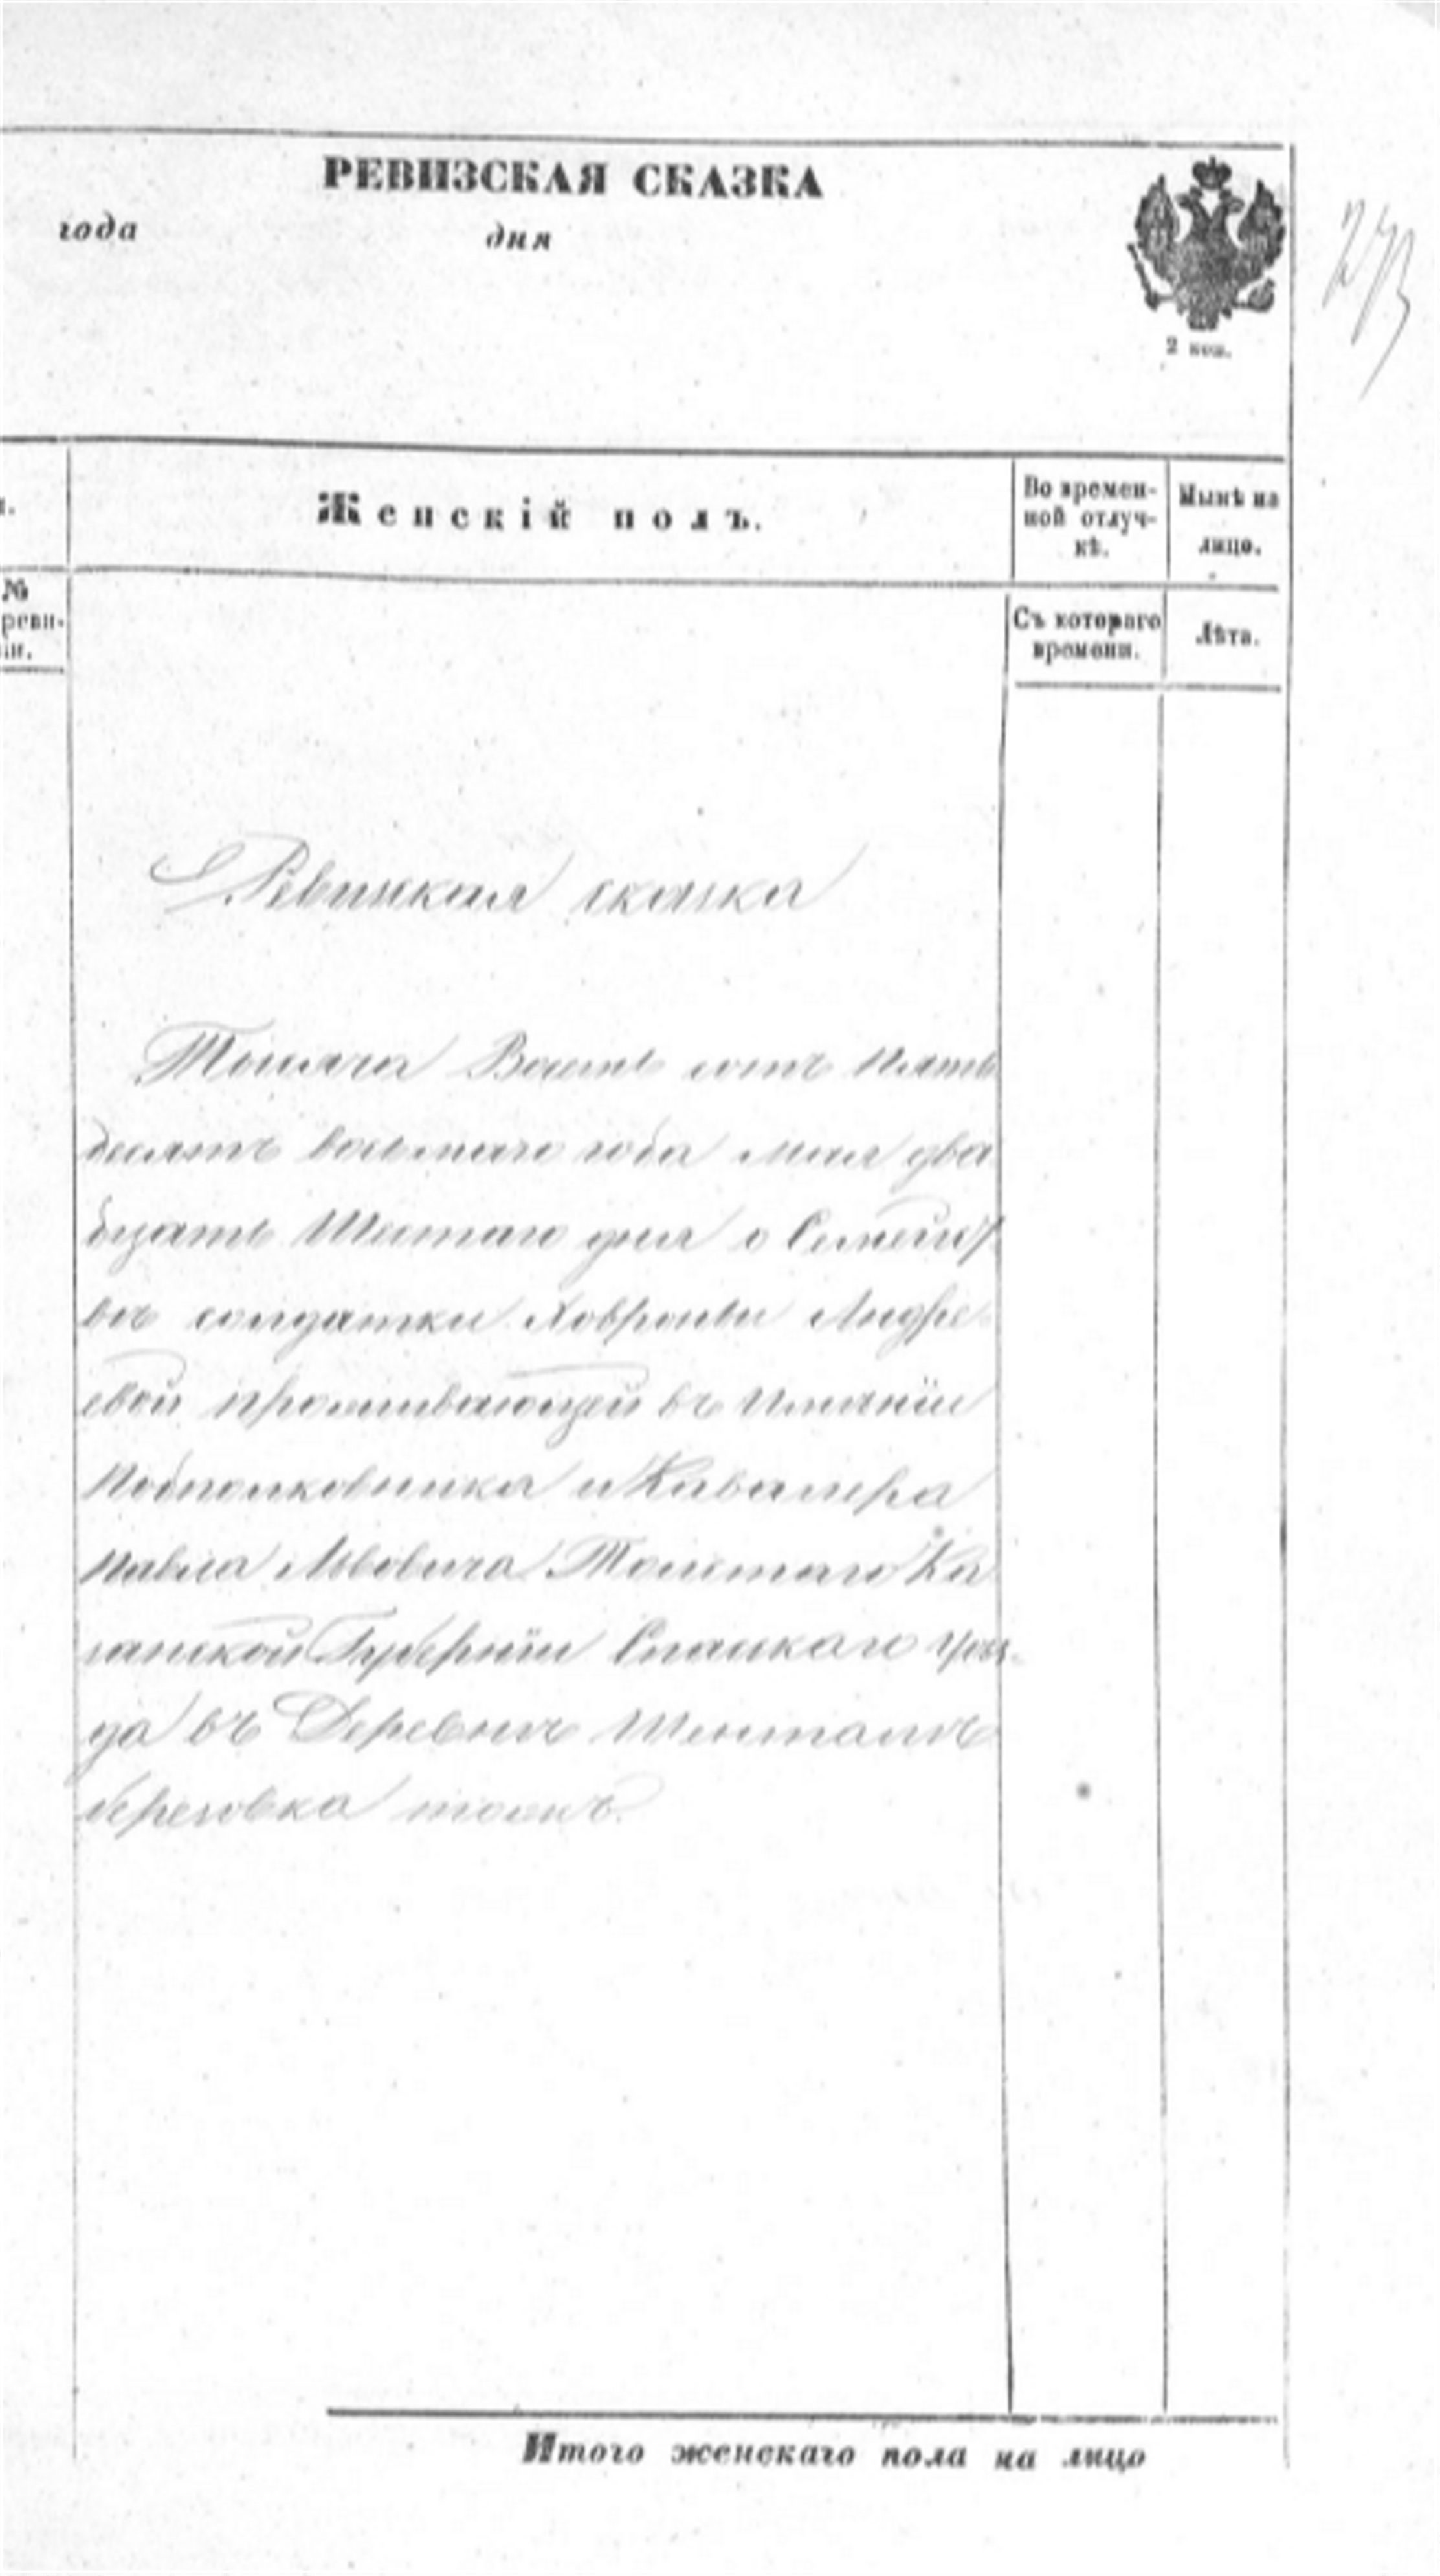 РЕВИЗСКАЯ СКАЗКА
года дня
273
2 коп.
Женскій полъ.
Во времен-
ной отлуч-
кѣ.
Нынѣ на
лицо.
№
реви-
зіи.
Съ котораго
времени.
Лѣта.
Ревизкая сказка
Тысяча Восемь сотъ пять
десятъ восьмаго года мая два
дцать Шестаго дня о Семейст
вѣ солдатки Ховроньи Андре
евой проживающей въ имѣніи
Подполковника и Кавалера
Павла Львовича Толстаго Ка
занской Губерніи Спаскаго уѣз
да въ Деревнѣ Шенталѣ
березовка тожъ.
Итого женскаго пола на лицо